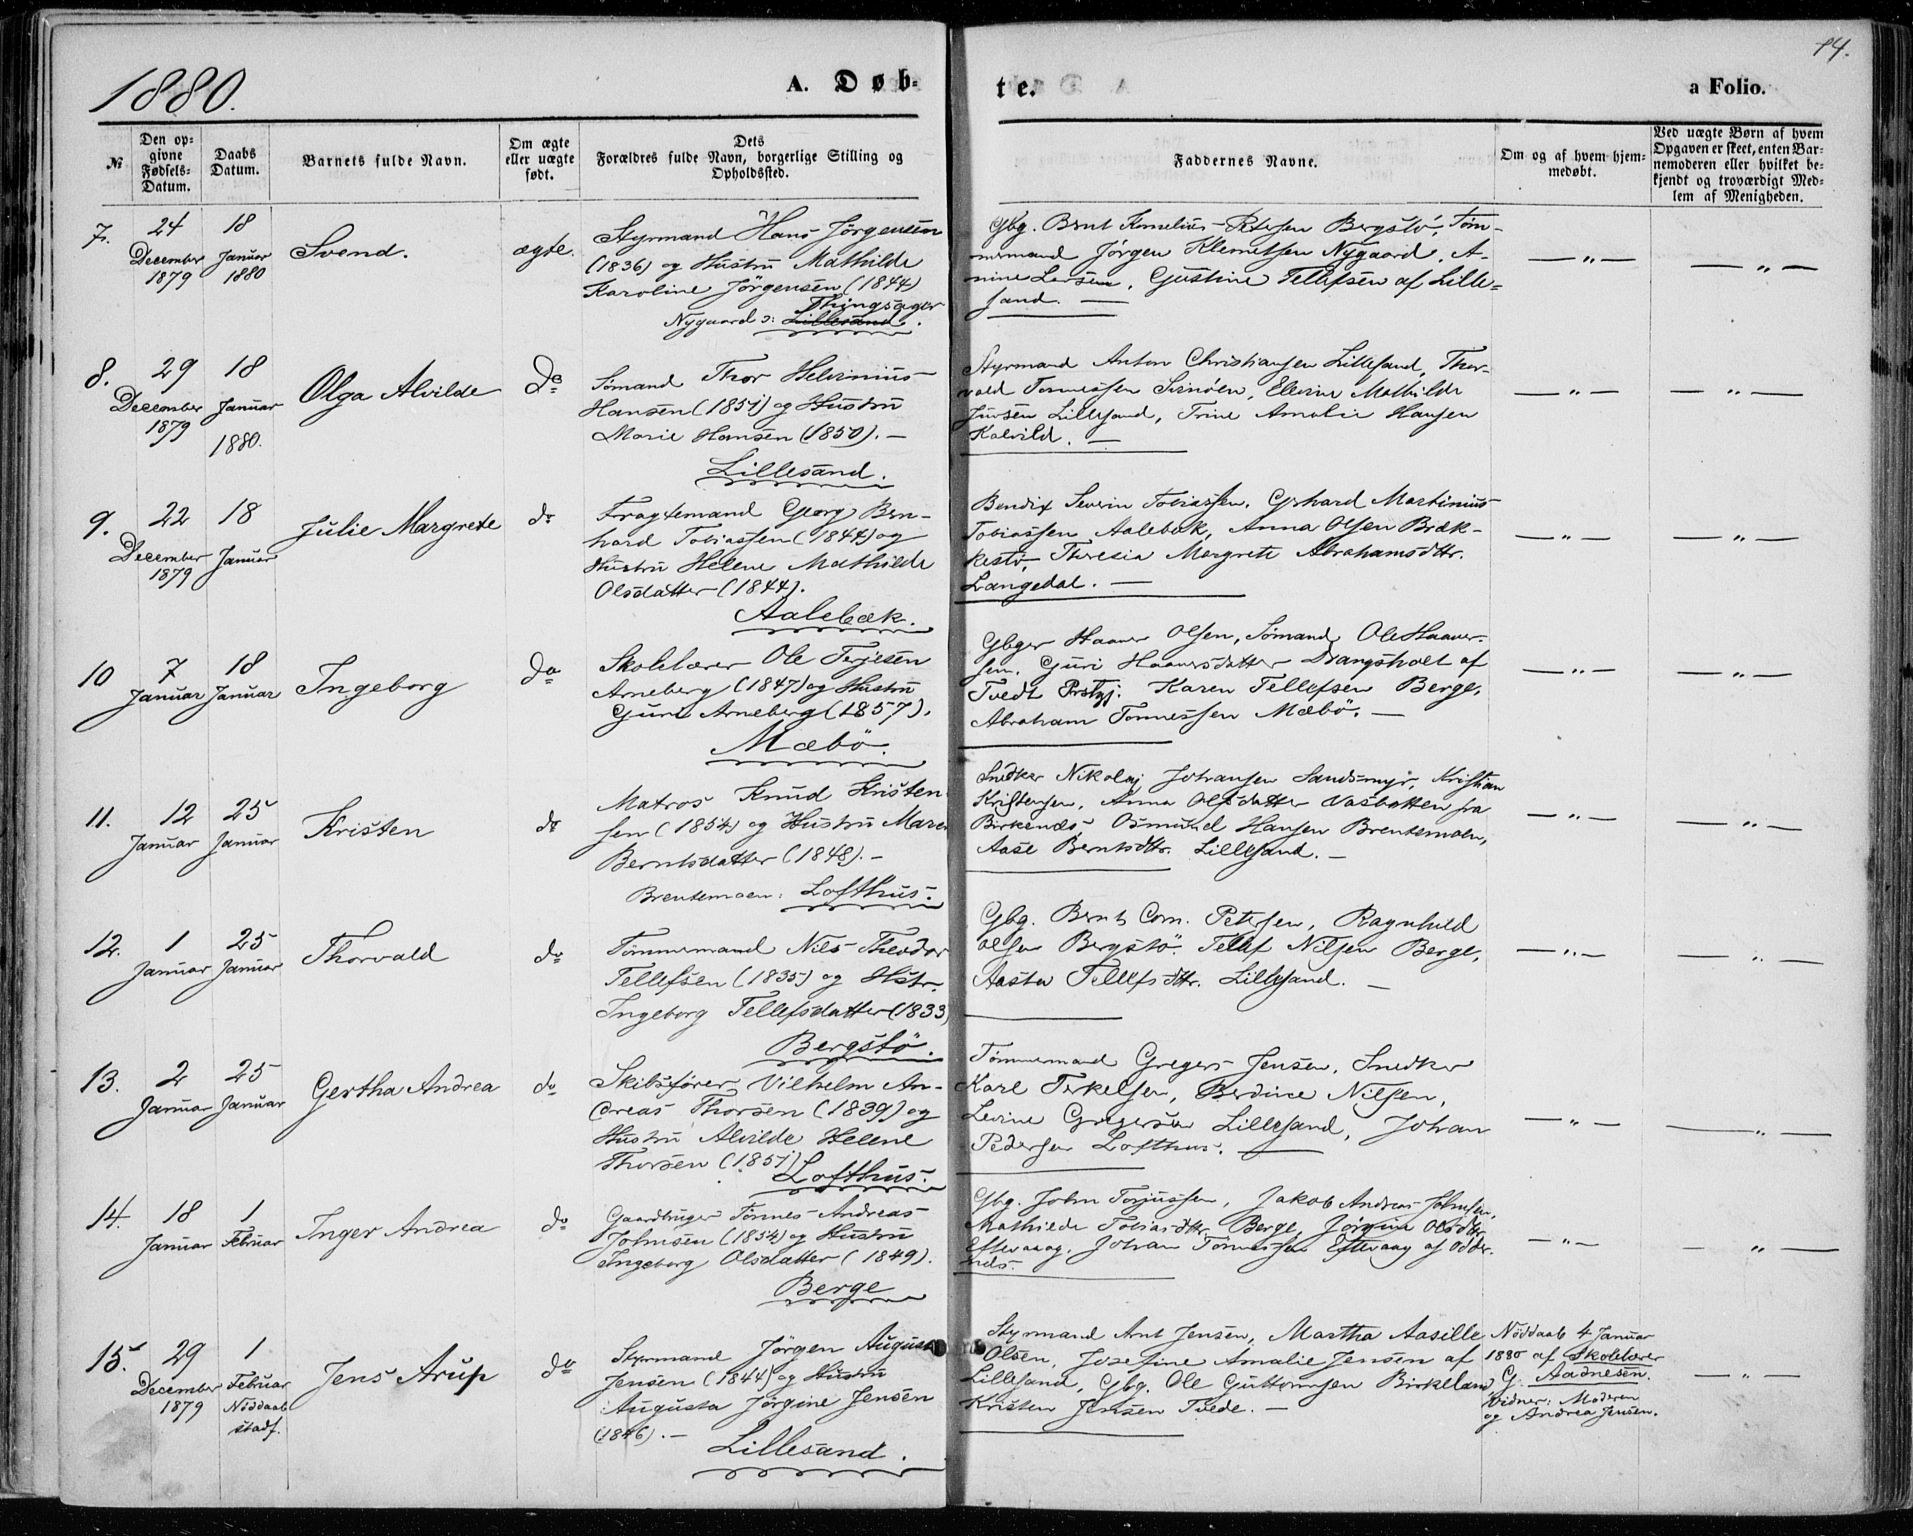 14.
1880.
A. Døb-
te.
a Folio.
№
Den op-
givne
Fødsels-
Datum.
Daabs
Datum.
Barnets fulde Navn.
Om ægte
eller uægte
født.
Dets
Forældres fulde Navn, borgerlige Stilling og
Opholdssted.
Faddernes Navne.
Om og af hvem hjem-
medøbt.
Ved uægte Børn af hvem
Opgaven er skeet, enten Bar-
nemoderen eller hvilket be-
kjendt og troværdigt Med-
lem af Menigheden.
7.
24
December
1879
18
Januar
1880
Svend.
ægte.
Styrmand Hans Jörgensen
(1836) og Hustru Mathilde
Karoline Jörgensen (1844)
Thingsager
Nygaard ɔ: Lillesand.
Gbg. Bernt Kornelius Petersen Bergstö, Töm-
mermand Jörgen Klemetsen Nygaard, A-
nine Larsen, Gustine Tellefsen af Lille-
sand. —
— " —
— " —
8.
29
December
1879
18
Januar
1880.
Olga Alvilde
Do
Sømand Thor Helvinius
Hansen (1851) og Hustru
Marie Hansen (1850). —
Lillesand.
Styrmand Anton Christiansen Lillesand, Thor-
vald Tønnessen Svinöen, Elevine Mathilde
Jursen Lillesand, Trine Amalie Hansen
Kalvild. —
— " —
— " —
9.
22
December
1879
18
Januar
Julie Margrete
do
Fragtemand Georg Bern-
hard Tobiassen (1844) og
Hustru Helene Mathilde
Olsdatter (1844).
Aalebæk.
Bendix Severin Tobiassen, Gerhard Martinius
Tobiassen Aalebæk, Anna Olsen Bræk-
kestö, Theresia Margrete Abrahamsdttr.
Langedal. —
— " —
— " —
10
7
Januar
18
Januar
Ingeborg
do
Skolelærer Ole Terjesen
Arneberg (1847) og Hustru
Guri Arneberg (1857).
Mæbö.
Gbger Haaver Olsen, Sømand Ole Haaver-
sen, Guri Haaversdatter Drangsholt af
Tvedt Prstgj. Karen Tellefsen Berge,
Abraham Tönnessen Mæbö. —
— " —
— " —
11.
12
Januar
25
Januar
Kristen
do
Matros Knud Kristen
sen (1854) og Hustru Maren
Berntsdatter (1848). —
Brentemoen: Lofthus.
Snedker Nikolaj Johansen Sandsmyr, Kristian
Kristensen, Anna Olsdatter Vasbotten fra
Birkenæs, Osmund Hansen Brentemoen,
Aase Berntsdttr. Lillesand. —
— " —
— " —
12.
1
Januar
25
Januar
Thorvald
do
Tömmermand Nils Theodor
Tellefsen (1835) og Hstr.
Ingeborg Tellefsdatter (1833)
Bergstö.
Gbg. Bernt Corn. Petersen, Ragnhild
Olsen Bergstö. Tellef Nilsen Berge,
Aasta Tellefsdttr. Lillesand. —
— " —
— " —
13.
2
Januar
25
Januar
Gertha Andrea
do
Skibsfører Vilhelm An-
dreas Thorsen (1839) og
Hustru Alvilde Helene
Thorsen (1851)
Lofthus.
Tømmermand Gregers Jensen, Snedker
Karl Terkelsen, Berdine Nilsen,
Levine Gregersen Lillesand, Johan
Pedersen Lofthus. —
— " —
— " —
14.
18
Januar
1
Februar
Inger Andrea
do
Gaardbruger Tönnes Andreas
Johnsen (1854) og Hustru
Ingeborg Olsdatter (1849).
Berge
Gbg. John Torjussen, Jakob Andreas Johnsen,
Mathilde Tobiasdttr. Berge, Jörgine Olsdttr.
Eftevaag, Johan Tönnessen Eftevaag af Odder-
næs.
— " —
— " —
15.
29
December
1879
1
Februar
Nöddaab
stadf.
Jens Arup
do
Styrmand Jörgen August
Jensen (1844) og Hustru
Augusta Jörgine Jensen
(1846). —
Lillesand.
Styrmand Arnt Jensen, Martha Aasille
Olsen, Josefine Amalie Jensen af
Lillesand, Gbg. Ole Guttormsen Birkeland,
Kristen Jensen Tvede. —
Nöddaab 4 Januar
1880 af Skolelærer
G. Aadnesen.
Vidner: Moderen
og Andrea Jensen.
— " —